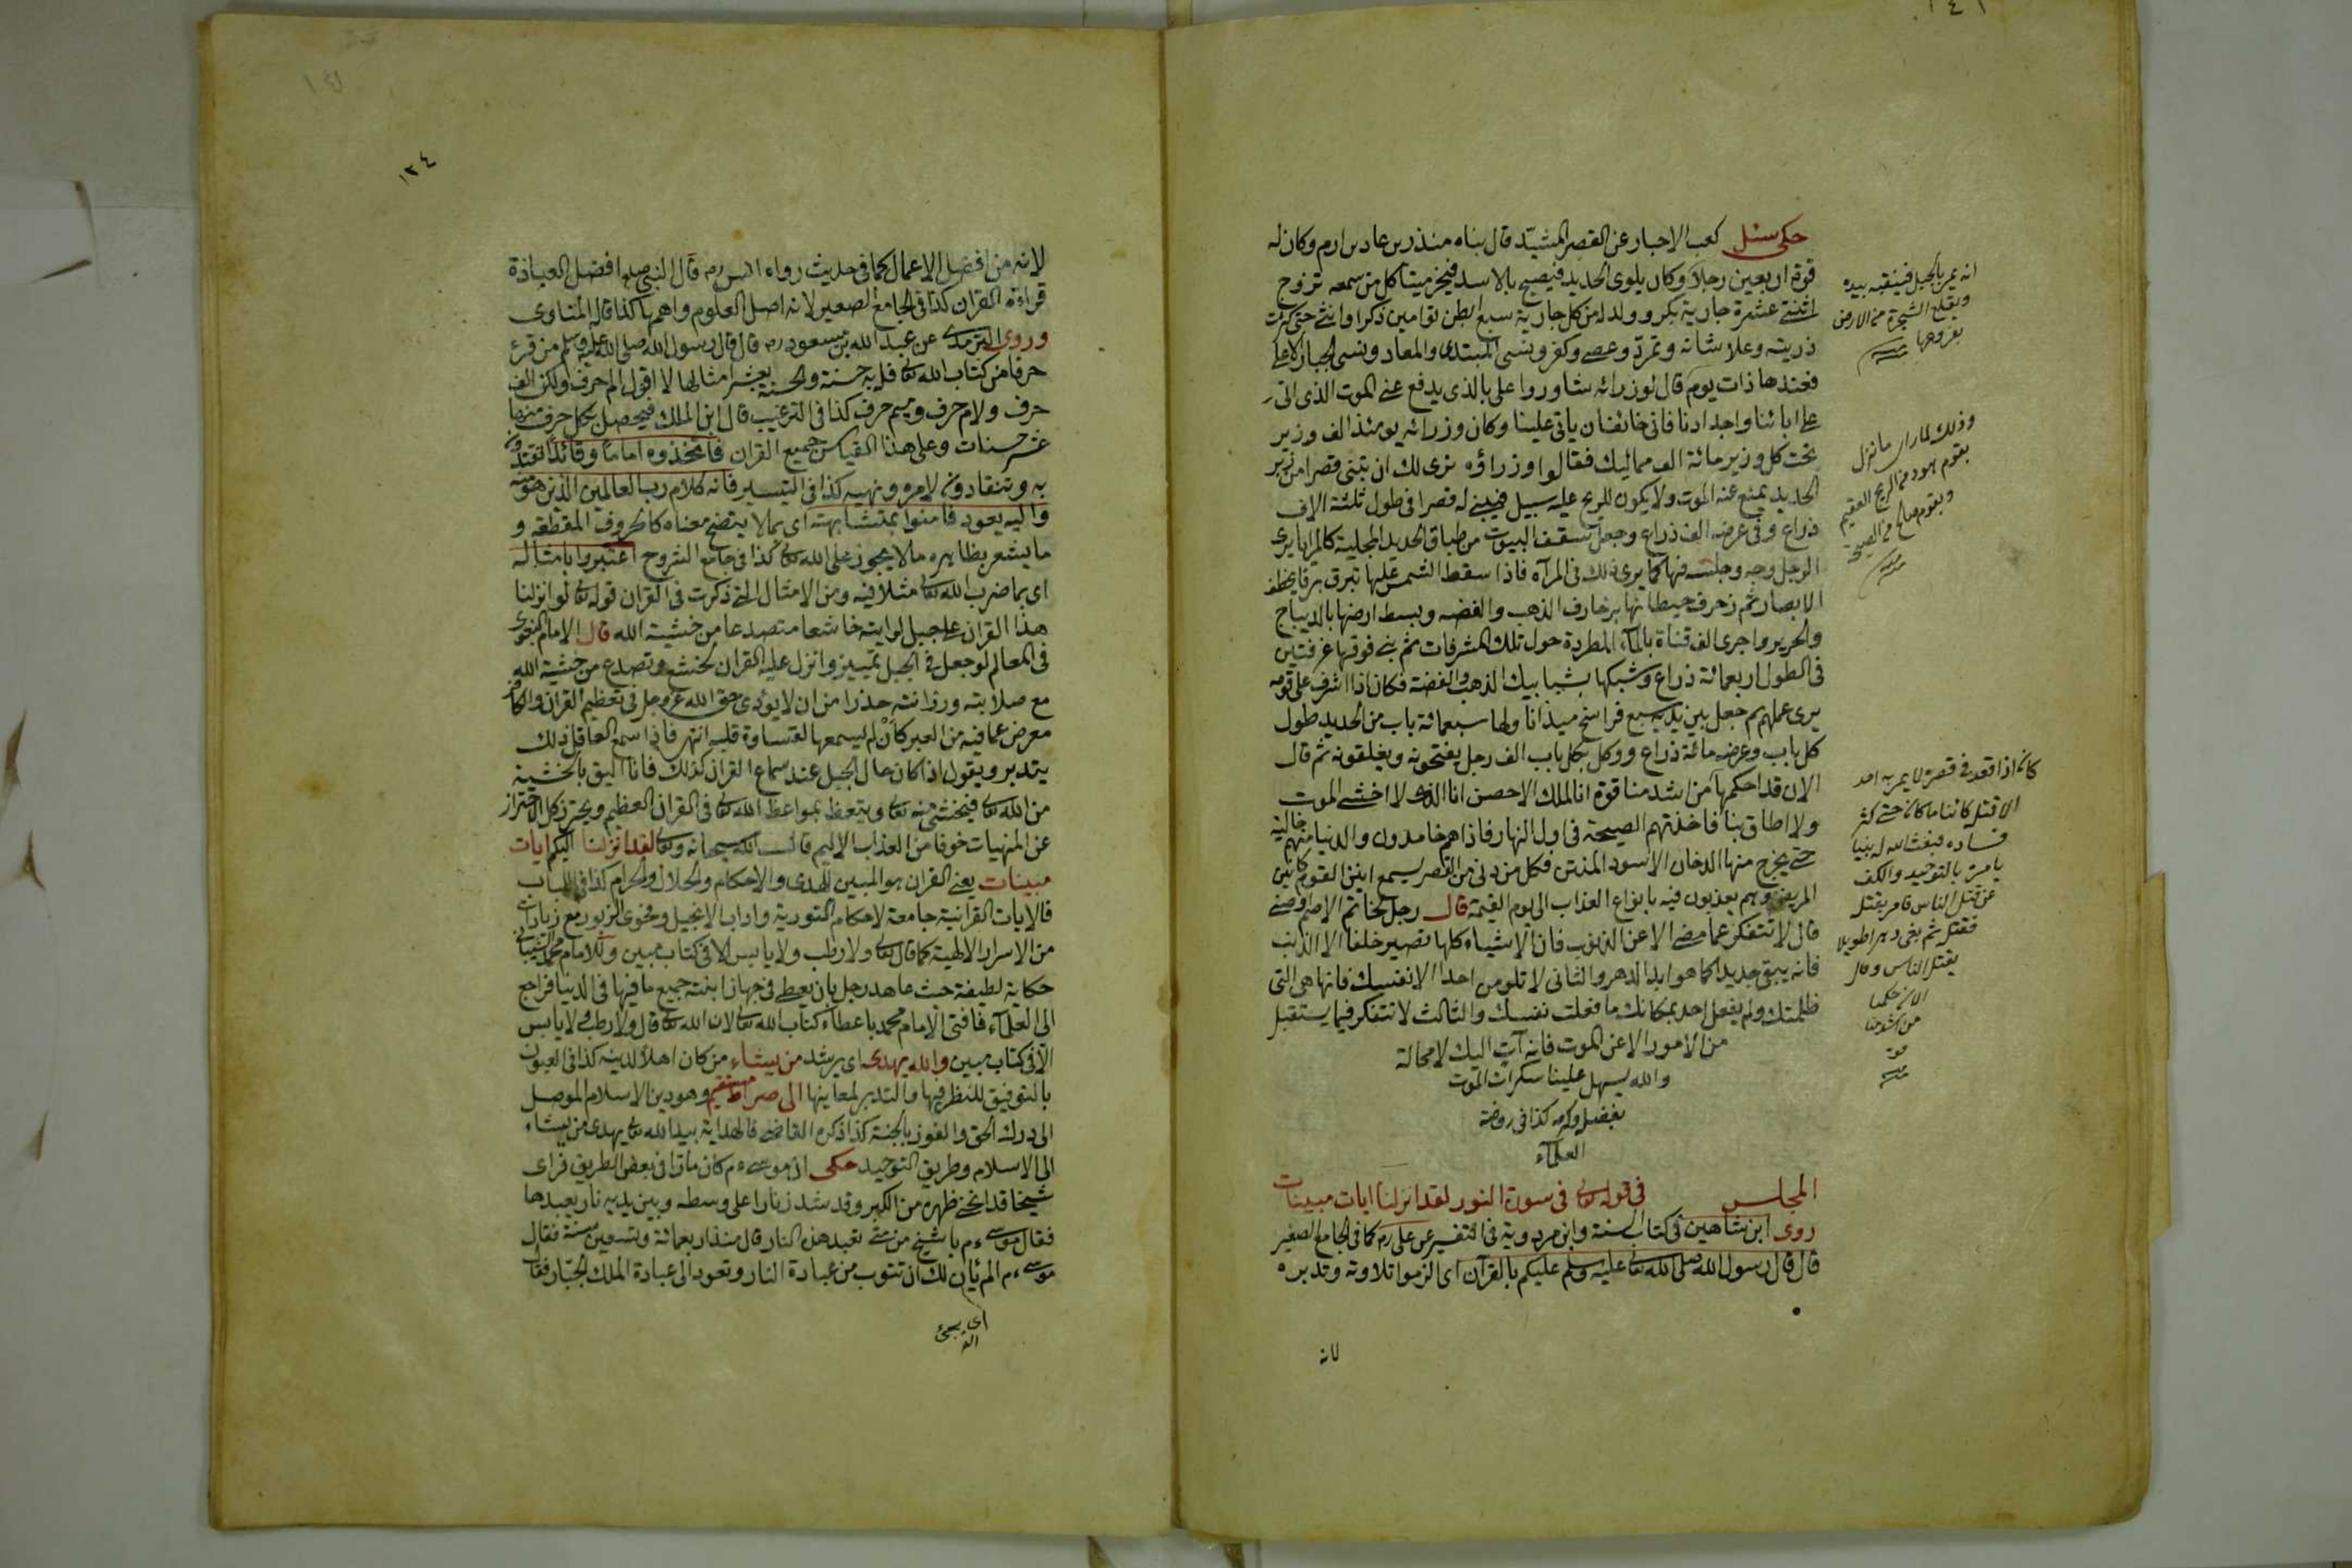 حكى سئل كعب الاحبار عن القصر المشيد قال بناه منذر بن عاد بن ارم وكان له
قوة اربعين رجلا وكان يلوى الحديد فيصيح بالاسد فيخر ميتا كل من سمعه تزوج
اثنتى عشرة جارية بكر وولد له من كل جارية سبع ابطن توامين ذكرا وانثى حتى كثرت
ذريته وعلا شانه وتمرد وعصى وكفر ونسى المبتدى والمعاد ونسى الجبار الاعلى
فعندها ذات يوم قال لوزرائه شاوروا على بالذى يدفع عنى الموت الذى اتى
على ابائنا واجدادنا فانى خائف ان ياتى علينا وكان وزرائه يومئذ الف وزير
تحت كل وزير مائة الف مماليك فقالوا وزراؤه نرى لك ان تبنى قصرا من زبر
الحديد يمنع عنه الموت ولا يكون للريح عليه سبيل فيبنى له قصرا فى طول ثلثة الاف
ذراع وفى عرضه الف ذراع وجعل سقف البيوت من طباق الحديد المجلية كالمرايا يرى
الرجل وجهه وجلسه فيها كما يرى ذلك فى المرآة فاذا سقط الشمس عليها تبرق برقا يخطف
الابصار ثم زخرف حيطانها بزخارف الذهب والفضه وبسط ارضها بالديباج
والحرير واجرى الف قناة بالماء المطردة حول تلك المشرفات ثم بنى فوقها غرفتين
فى الطول اربعمائة ذراع وشبكها بشبابيك الذهب والفضة فكان اذا اشرف على قومه
يرى عملهم ثم جعل بين يديه سبع فراسخ ميدانا ولها سبعمائة باب من الحديد طول
كل باب وعرضه مائة ذراع ووكل بكل باب الف رجل يفتحونه ويغلقونه ثم قال
الان قد احكمها من اشد منا قوة انا الملك الاحصن انا الذى لا اخشى الموت
ولا اطاق بنا فاخذتهم الصيحة فى اول النهار فاذا هم خامدون والدنيا منهم خالية
حتى يخرج منها الدخان الاسود المنتن فكل من دنى من القصر يسمع انين القوم كانين
المريض وهم يعذبون فيه بانواع العذاب الى يوم القيمة قال رجل لحاتم الاصم اوصنى
قال لا تتفكر عما مضى الا عن الذنوب فان الاشياء كلها تصير خلفا الا الذنب
فانه يبقى جديدا كما هو ابد الدهر والثانى لا تلومن احدا الا نفسك فانها هى التى
ظلمتك ولم يفعل احد بمكانك ما فعلت نفسك والثالث لا تتفكر فيما يستقبل
من الامور الا عن الموت فانه آت اليك لا محالة
والله يسهل علينا سكرات الموت
بفضله وكرمه كذا فى روضة
العلماء
المجلس فى قوله تعالى فى سورة النور لقد انزلنا ايات مبينات
روى ابن شاهين فى كتاب السنة وابن مردوية فى التفسير عن على رم كما فى الجامع الصغير
قال قال رسول الله صلى الله تعالى عليه وسلم عليكم بالقرآن اى الزموا تلاوته وتدبره
لانه
انه يمر بالجبل فينقبه بيده
ويقلع الشجرة من الارض
بعروقها
وذلك لما راى ما نزل
بقوم هود من الريح العقيم
وبقوم صالح من الصيحة
كان اذا قعد فى قصره لا يمر به احد
الا قتله كائنا ما كان حتى كثر
فساده فبعث الله له نبيا
يامره بالتوحيد والكف
عن قتل الناس فامر بقتله
فقتله ثم بقى دهرا طويلا
يقتل الناس وقال
من اشد منا
قوة
١٣٤
لانه من افضل الاعمال كما فى حديث رواه انس رم قال النبى صلم افضل العبادة
قراءة القران كذا فى الجامع الصغير لانه اصل العلوم واهمها كذا قاله المناوى
وروى الترمذى عن عبد الله بن مسعود رم قال قال رسول الله صلى الله عليه وسلم من قرء
حرفا من كتاب الله تعالى فله به حسنة والحسنة بعشر امثالها لا اقول الم حرف ولكن الف
حرف ولام حرف وميم حرف كذا فى الترغيب قال ابن الملك فيحصل بكل حرف منها
عشر حسنات وعلى هذا القياس جميع القران فاتخذوه اماما وقائدا تقتدون
به وتنقادون لامره ونهيه كذا فى التيسير فانه كلام رب العالمين الذى هو منه
واليه يعود فامنوا بمتشابهته اى بما لا يتضح معناه كالحروف المقطعة و
ما يشعر بظاهره ما لا يجوز على الله تعالى كذا فى جامع الشروح اعتبروا بامثاله
اى بما ضرب الله تعالى مثلا فيه ومن الامثال التى ذكرت فى القران قوله تعالى لو انزلنا
هذا القران على جبل لرايته خاشعا متصدعا من خشية الله قال الامام البغوى
فى المعالم لو جعل فى الجبل تمييز وانزل عليه القران لخشع وتصدع من خشية الله
مع صلابته ورزانته حذرا من ان لا يؤدى حق الله عز وجل فى تعظيم القران والكافر
معرض عما فيه من العبر كأن لم يسمعها لقساوة قلبه انتهى فاذا سمع العاقل ذلك
يتدبر ويقول اذا كان حال الجبل عند سماع القران كذلك فانا اليق بالخشية
من الله تعالى فيخشى منه تعالى ويتعظ بمواعظ الله تعالى فى القران العظيم ويحترز كل الاحتراز
عن المنهيات خوفا من العذاب الاليم قال الله سبحانه وتعالى لقد انزلنا اليكم ايات
مبينات يعنى القران هو المبين للهدى والاحكام والحلال والحرام كذا فى اللباب
فالايات القرانية جامعة لاحكام التورية واداب الانجيل وفحوى الزبور مع زيادات
من الاسرار الالهية كما قال تعالى ولا رطب ولا يابس الا فى كتاب مبين وللامام محمد الشيبانى
حكاية لطيفة حيث عاهد رجل بان يعطى فى جهاز ابنته جميع ما فيها فى الدنيا فراجع
الى العلماء فافتى الامام محمد باعطاء كتاب الله تعالى لان الله تعالى قال ولا رطب ولا يابس
الا فى كتاب مبين والله يهدى اى يرشد من يشاء من كان اهلا لدينه كذا فى العيون
بالتوفيق للنظر فيها والتدبر لمعاينها الى صراط مستقيم وهو دين الاسلام الموصل
الى درك الحق والفوز بالجنة كذا ذكره القاضى فالهداية بيد الله تعالى يهدى من يشاء
الى الاسلام وطريق التوحيد حكى ان موسى ءم كان مارا فى بعض الطريق فراى
شيخا قد انحنى ظهره من الكبر وقد شد زنارا على وسطه وبين يديه نار يعبدها
فقال موسى ءم يا شيخ من متى تعبد هذه النار قال منذ اربعمائة وتسعين سنة فقال
موسى ءم الم يان لك ان تتوب من عبادة النار وتعود الى عبادة الملك الجبار فقال
اى يجئ